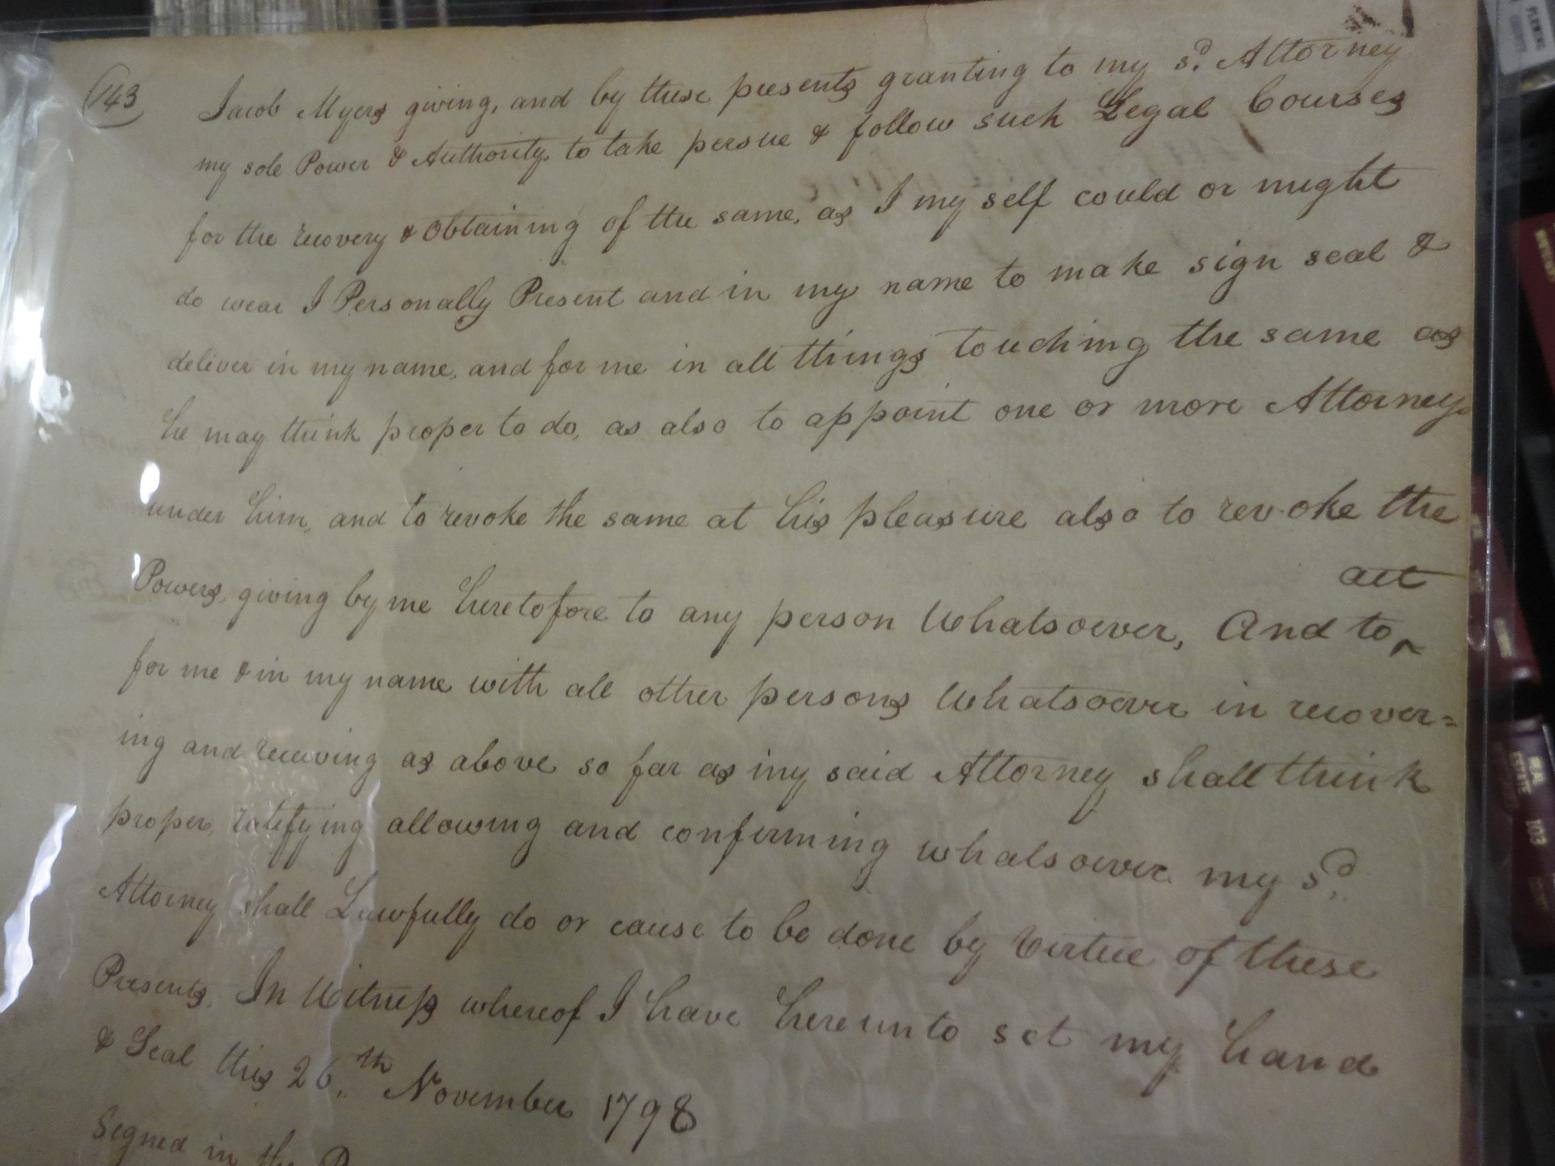 143
Jacob Myers giving, and by these presents granting to my sd. Attorney
my sole Power & Authority, to take persue & follow such Legal Courses
for the recovery & obtaining of the same, as I my self could or might
do wear I Personally Present and in my name to make sign seal &
deliver in my name, and for me in all things touching the same as
he may think proper to do, as also to appoint one or more Attorneys
under him, and to revoke the same at his pleasure also to revoke the
Powers, giving by me heretofore to any person Whatsoever, And to ^ act
for me & in my name with all other persons Whatsoever in recover=
ing and receiving as above so far as my said Attorney shall think
proper, ratifying allowing and confirming whatsoever my sd.
Attorney shall Lawfully do or cause to be done by Virtue of these
Presents. In Witness whereof I have hereunto set my hand
& Seal this 26.th November 1798
Segned in the
FLEMING
103